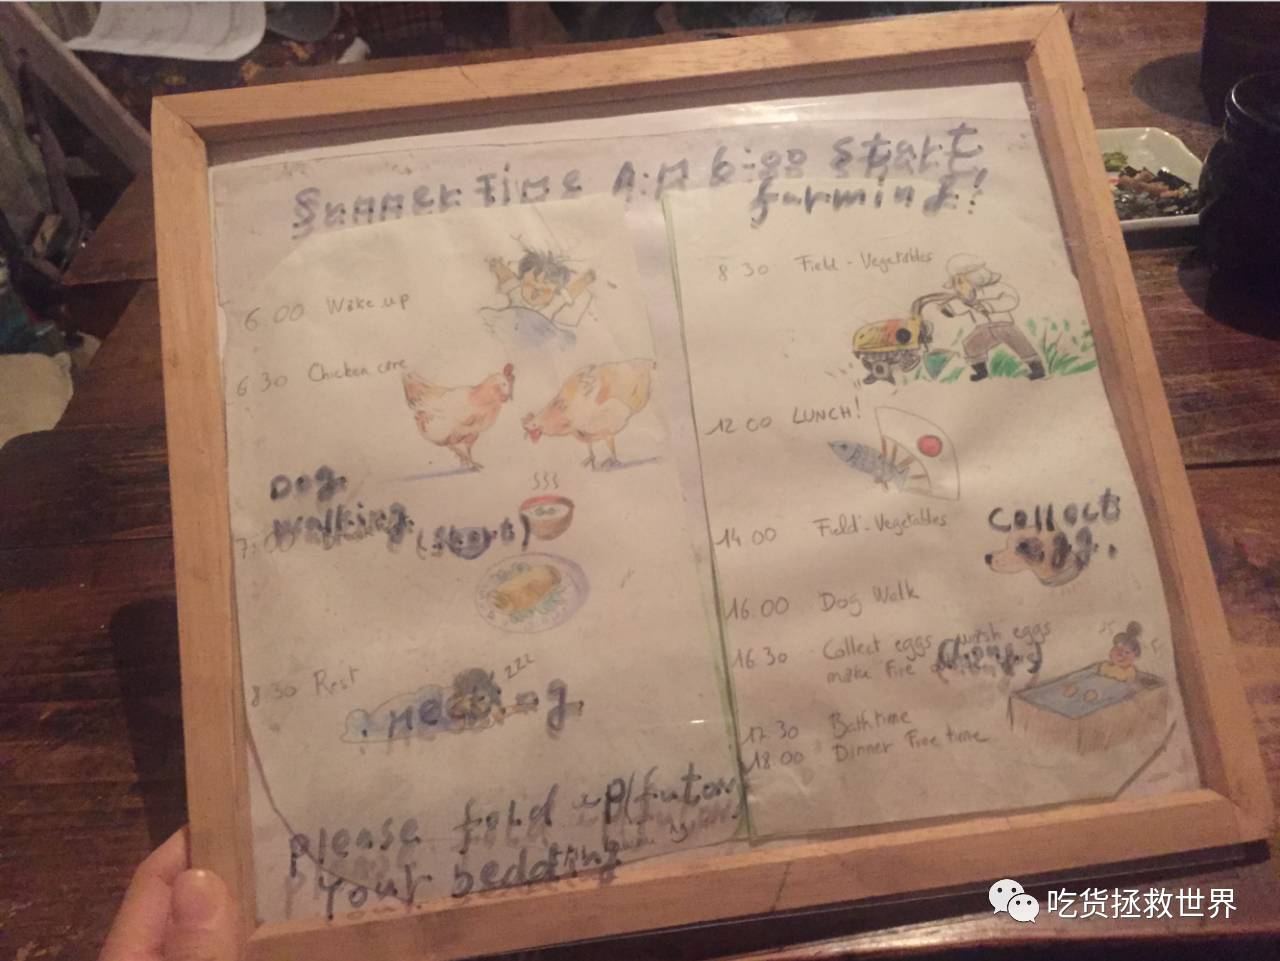 Summer Time A.M 6:00 start
farming!
6.00 Wake up
6.30 Chicken care
Dog
walking
7.00
(short)
8.30 Rest
zzz
Please fold up (futon)
your bedding
8.30 Field-Vegetables
12.00 LUNCH!
14.00 Field-Vegetables
collect
egg.
16.00 Dog Walk
16.30 Collect eggs wash eggs
make fire
17.30 Bathtime
18.00 Dinner Free time
吃货拯救世界